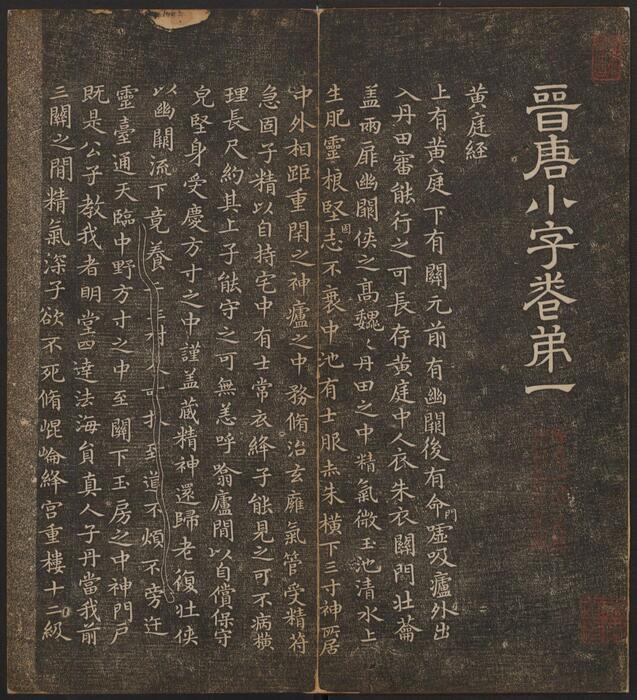 晉唐小字卷第一
黄庭経
上有黄庭下有關元前有幽闕後有命門嘘吸廬外出
入丹田審能行之可長存黄庭中人衣朱衣關門壮蘥
盖兩扉幽闕侠之髙魏〻丹田之中精氣微玉池清水上
生肥靈根堅固志不衰中池有士服赤朱橫下三寸神所居
中外相距重閇之神廬之中務脩治玄廱氣管受精符
急固子精以自持宅中有士常衣絳子能見之可不病橫
理長尺約其上子能守之可無恙呼翕廬間以自償保守
皃堅身受慶方寸之中謹盖蔵精神還歸老復壮侠
以幽闕流下竟養
道不煩不旁迕
靈臺通天臨中野方寸之中至關下玉房之中神門戸
既是公子教我者明堂四達法海負真人子丹當我前
三關之間精氣深子欲不死脩崐崘絳宫重樓十二級